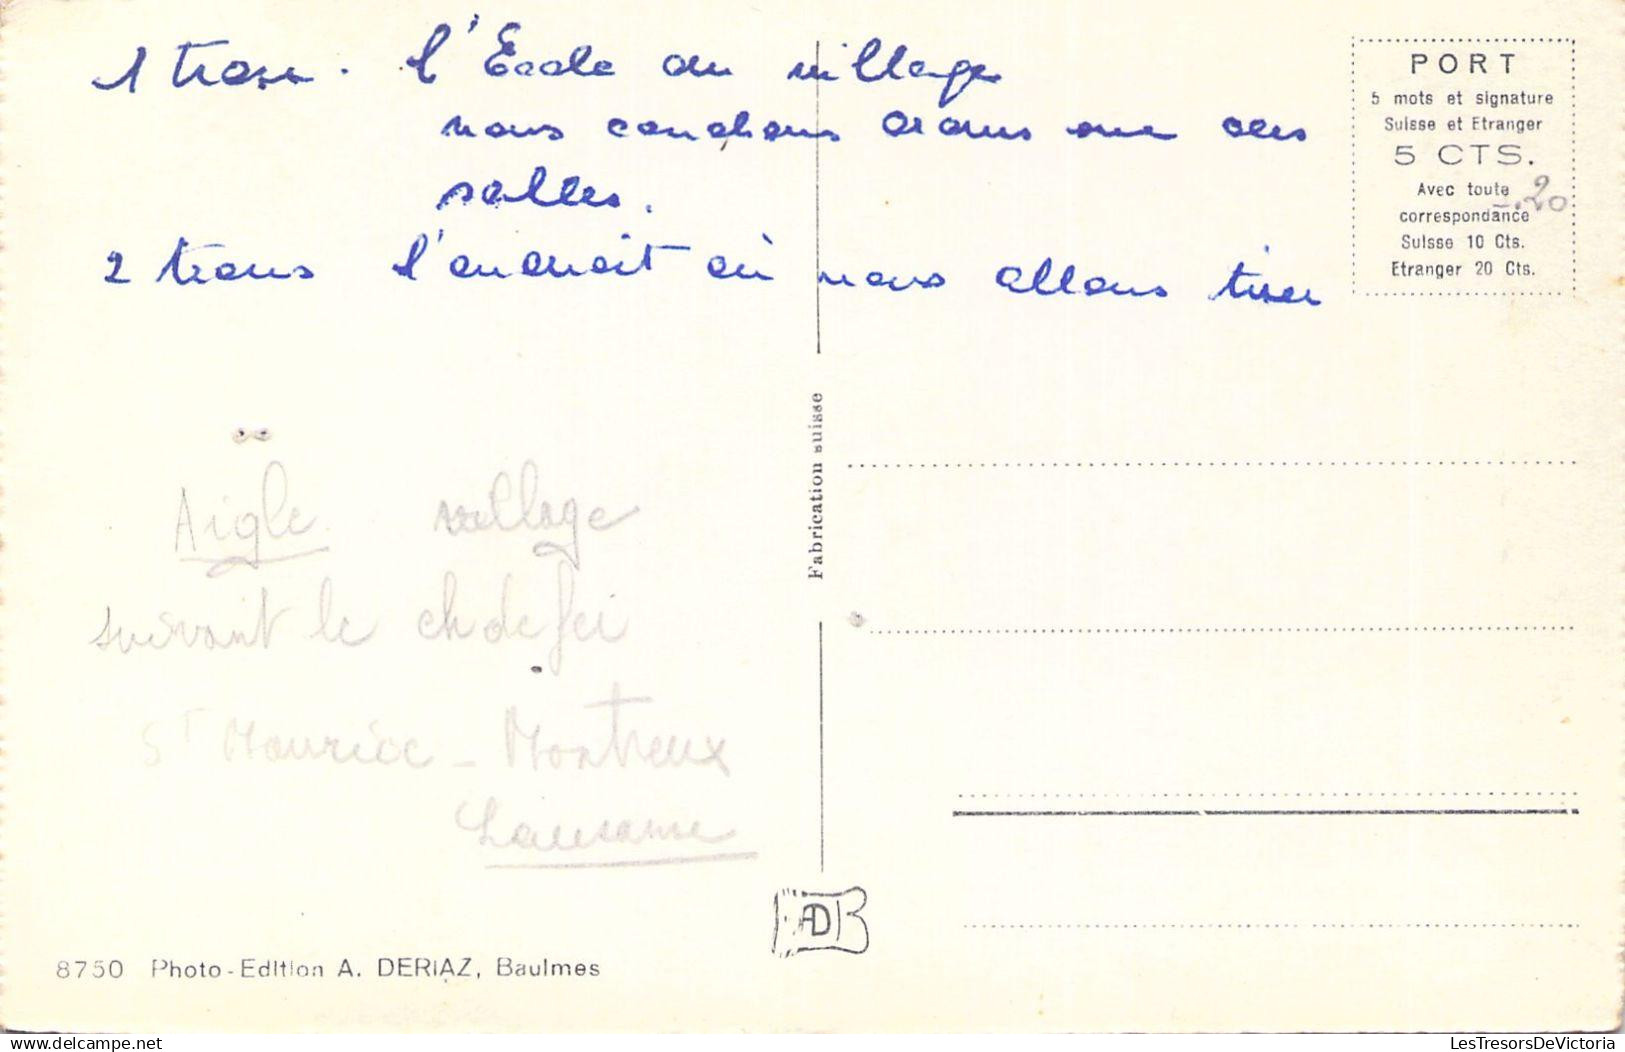 1 trou. l'École du village
nous couchons dans une des
salles.
2 trous l'endroit où nous allons tirer
PORT
5 mots et signature
Suisse et Etranger
5 CTS.
Avec toute
correspondance
Suisse 10 Cts.
Etranger 20 Cts.
.20
Fabrication suisse
Aigle village
suivant le ch de fer
St Maurice - Montreux
Lausanne
AD
8750 Photo-Edition A. DERIAZ, Baulmes
delcampe.net
LesTresorsDeVictoria